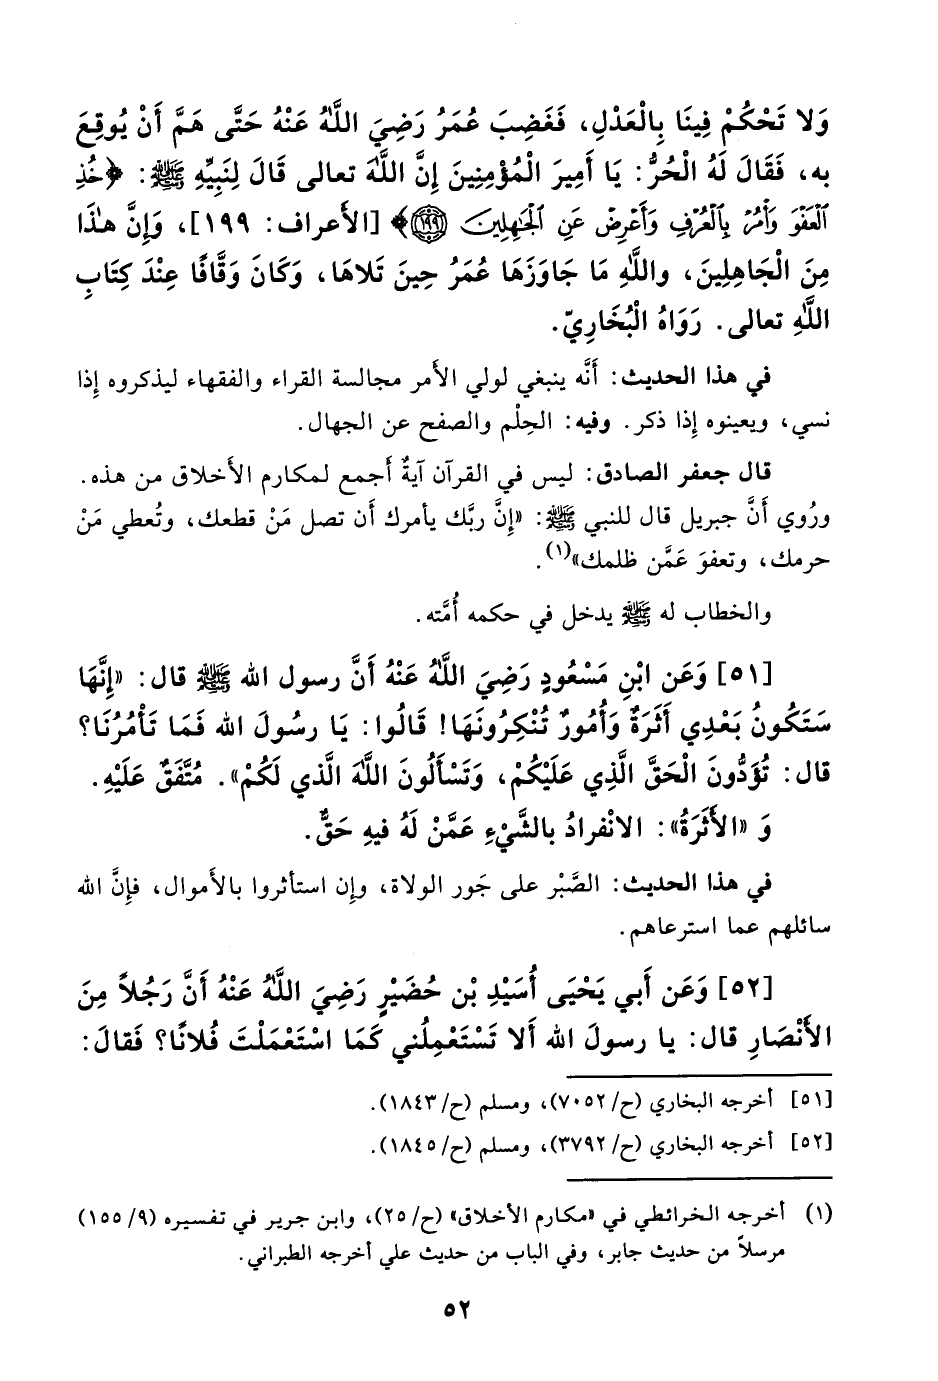 وَلا تَحْكُمْ فِينَا بِالْعَدْلِ، فَغَضِبَ عُمَرُ رَضِيَ اللَّهُ عَنْهُ حَتَّى هَمَّ أَنْ يُوقِعَ
به، فَقَالَ لَهُ الْحُرُّ: يَا أَمِيرَ الْمُؤْمِنِينَ إِنَّ اللَّهَ تعالى قَالَ لِنَبِيِّهِ ﷺ: ﴿خُذِ
ٱلۡعَفۡوَ وَأۡمُرۡ بِٱلۡعُرۡفِ وَأَعۡرِضۡ عَنِ ٱلۡجَٰهِلِينَ ۝١٩٩﴾ [الأعراف: ١٩٩]، وَإِنَّ هٰذَا
مِنَ الْجَاهِلِينَ، واللَّهِ مَا جَاوَزَهَا عُمَرُ حِينَ تَلاهَا، وَكَانَ وَقَّافًا عِنْدَ كِتَابِ
اللَّهِ تعالى. رَوَاهُ الْبُخَارِيّ.
في هذا الحديث: أَنَّه ينبغي لولي الأَمر مجالسة القراء والفقهاء ليذكروه إِذا
نسي، ويعينوه إِذا ذكر. وفيه: الحِلْم والصفح عن الجهال.
قال جعفر الصادق: ليس في القرآن آيةٌ أَجمع لمكارم الأَخلاق من هذه.
ورُوي أَنَّ جبريل قال للنبي ﷺ: «إِنَّ ربَّك يأمرك أَن تصل مَنْ قطعك، وتُعطي مَنْ
حرمك، وتعفوَ عَمَّن ظلمك»(١).
والخطاب له ﷺ يدخل في حكمه أُمَّته.
[٥١] وَعَن ابْنِ مَسْعُودٍ رَضِيَ اللَّهُ عَنْهُ أَنَّ رسول الله ﷺ قال: «إِنَّهَا
سَتَكُونُ بَعْدِي أَثَرَةٌ وَأُمُورٌ تُنْكِرُونَهَا! قَالُوا: يَا رسُولَ الله فَمَا تَأْمُرُنَا؟
قال: تُؤَدُّونَ الْحَقَّ الَّذِي عَلَيْكُمْ، وَتَسْأَلُونَ اللَّهَ الَّذي لَكُمْ». مُتَّفَقٌ عَلَيْهِ.
وَ «الأَثَرَةُ»: الانْفرادُ بالشَّيْءِ عَمَّنْ لَهُ فيهِ حَقٌّ.
في هذا الحديث: الصَّبْر على جَور الولاة، وإِن استأثروا بالأَموال، فإِنَّ الله
سائلهم عما استرعاهم.
[٥٢] وَعَن أَبي يَحْيَى أُسَيْدِ بْن حُضَيْرٍ رَضِيَ اللَّهُ عَنْهُ أَنَّ رَجُلاً مِنَ
الأَنْصَارِ قال: يا رسولَ الله أَلا تَسْتَعْمِلُني كَمَا اسْتَعْمَلْتَ فُلانًا؟ فَقالَ:
[٥١] أخرجه البخاري (ح/ ٧٠٥٢)، ومسلم (ح/ ١٨٤٣).
[٥٢] أخرجه البخاري (ح/ ٣٧٩٢)، ومسلم (ح/ ١٨٤٥).
(١) أخرجه الخرائطي في «مكارم الأخلاق» (ح/ ٢٥)، وابن جرير في تفسيره (٩/ ١٥٥)
مرسلاً من حديث جابر، وفي الباب من حديث علي أخرجه الطبراني.
٥٢